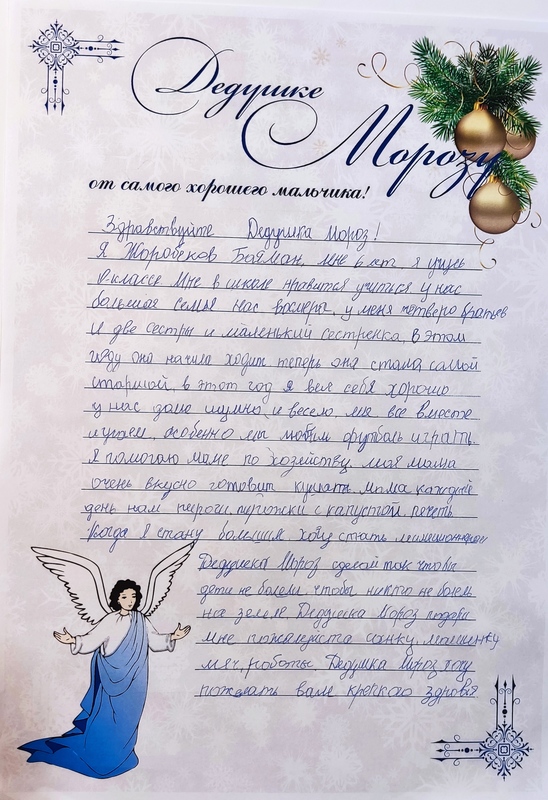 Дедушке
Морозу
от самого хорошего мальчика!
Здравствуйте Дедушка Мороз!
Я Жоробеков Байман, мне 6 лет я учусь
0-классе. Мне в школе нравится учится у нас
большая семья нас восмеры, у меня четверо братьев
и две сестры и маленький сестренка, в этом
году она начила ходит теперь она стала самой
старшой, в этот год я вел себя хорошо
у нас дома шумно и весело, мы все вместе
играем, особенно мы любим футболь играть.
Я помогаю маме по хозяйству. моя мама
очень вкусно готовит кушать, мама каждый
день нам пироги, пирожки с капустой печеть
Когда я стану большим хочу стать
Дедушка Мороз сделай так чтобы
дети не болели, чтобы никто не болел
на земле Дедушка Мороз подари
мне пожалуйста санку, машинку
мяч, роботы Дедушка Мороз хочу
пожелать вам крепкого здровья